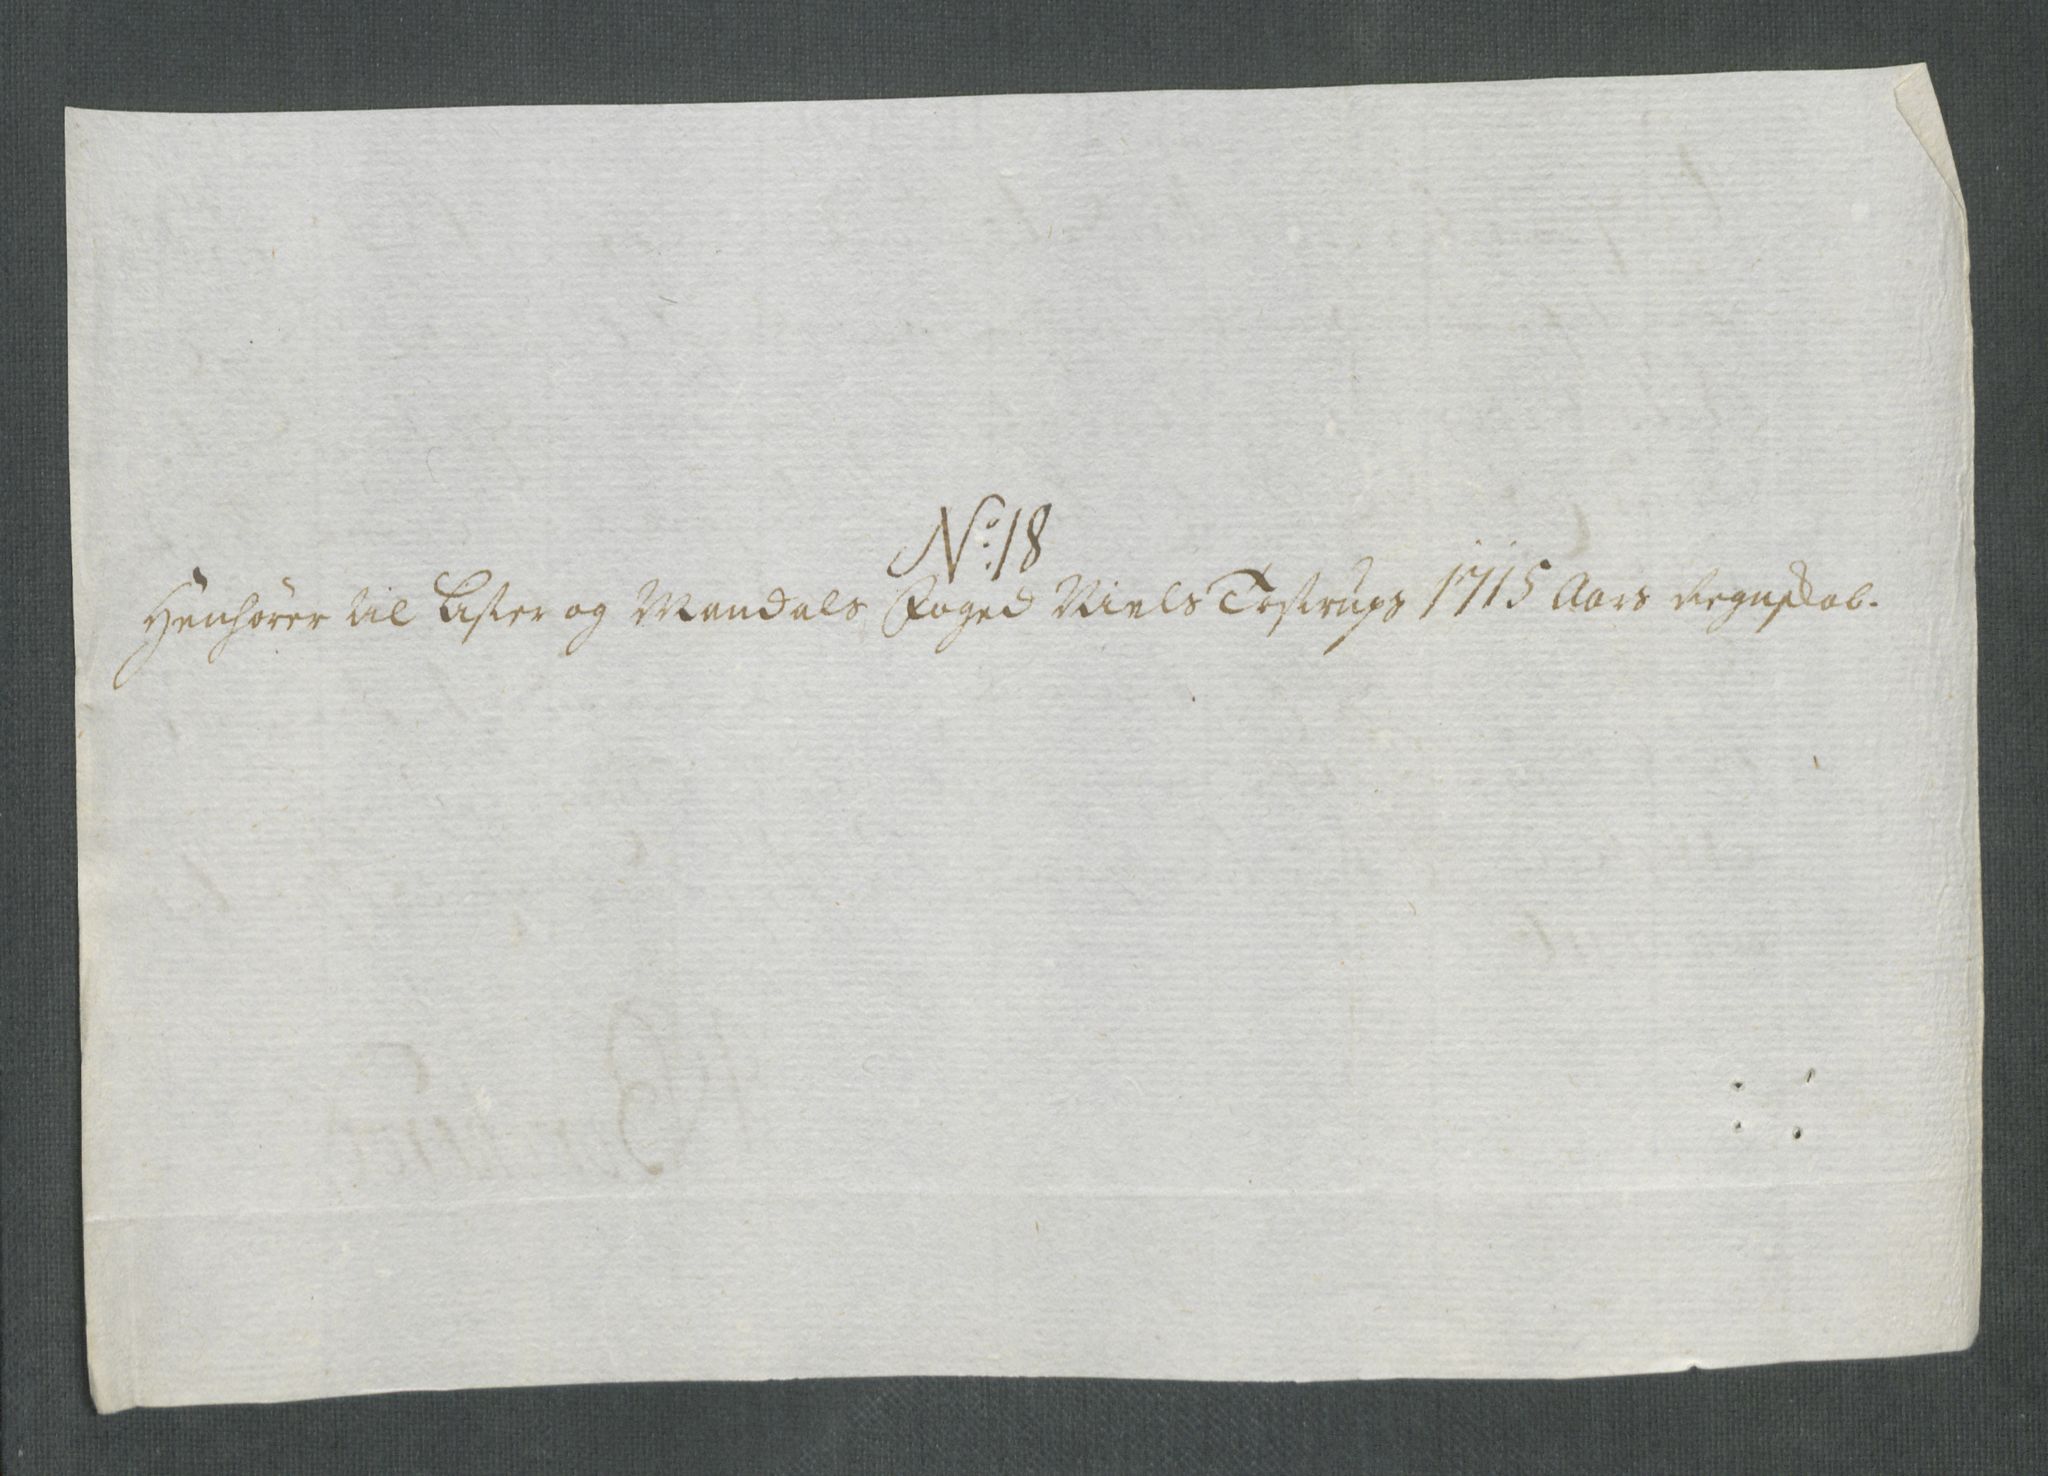 No: 18
Henhörer til Lister og Mandals Foged Niels Tostrups 1715 Aars Regnskab.